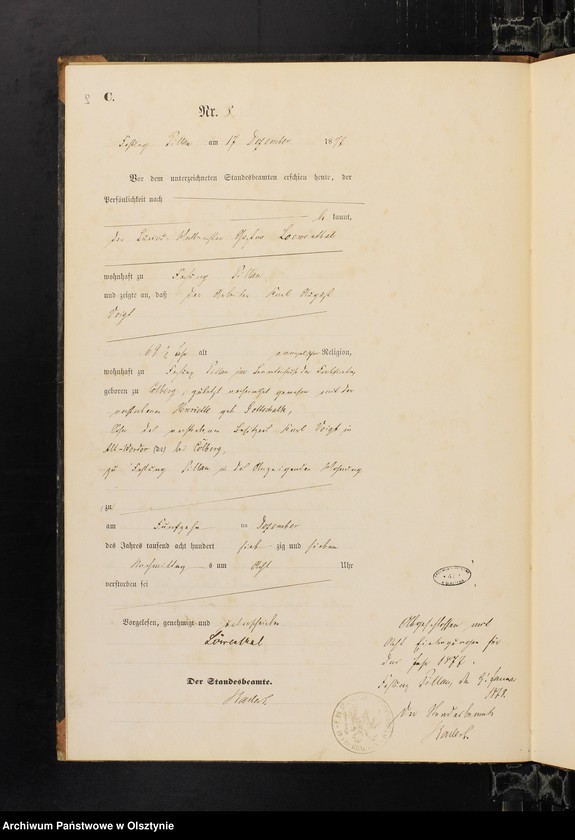 2
C.
Nr. 8
Festung Pillau am 17 Dezember 1877
Vor dem unterzeichneten Standesbeamten erschien heute, der
Persönlichkeit nach
kannt,
der Gustav Loewenthal
wohnhaft zu Festung Pillau
und zeigte an, daß der Arbeiter Karl August
Voigt
69 1/2 Jahr alt evangelischer Religion,
wohnhaft zu Festung Pillau im
geboren zu Colberg, zuletzt verheirathet gewesen mit der
verstorbenen Henriette geb Gottschalk,
Sohn des verstorbenen Besitzers Karl Voigt in
Alt-Werder bei Colberg,
zu Festung Pillau in des Anzeigenden Wohnung
zu
am Fünfzehn ten Dezember
des Jahres tausend acht hundert sieb zig und sieben
Nachmittags um Acht Uhr
verstorben sei
Vorgelesen, genehmigt und unterschrieben
Löwenthal
Der Standesbeamte.
Abgeschlossen mit
Acht Eintragungen für
das Jahr 1877.
Festung Pillau, den Januar
1878.
Der Standesbeamte
Archiwum Państwowe w Olsztynie